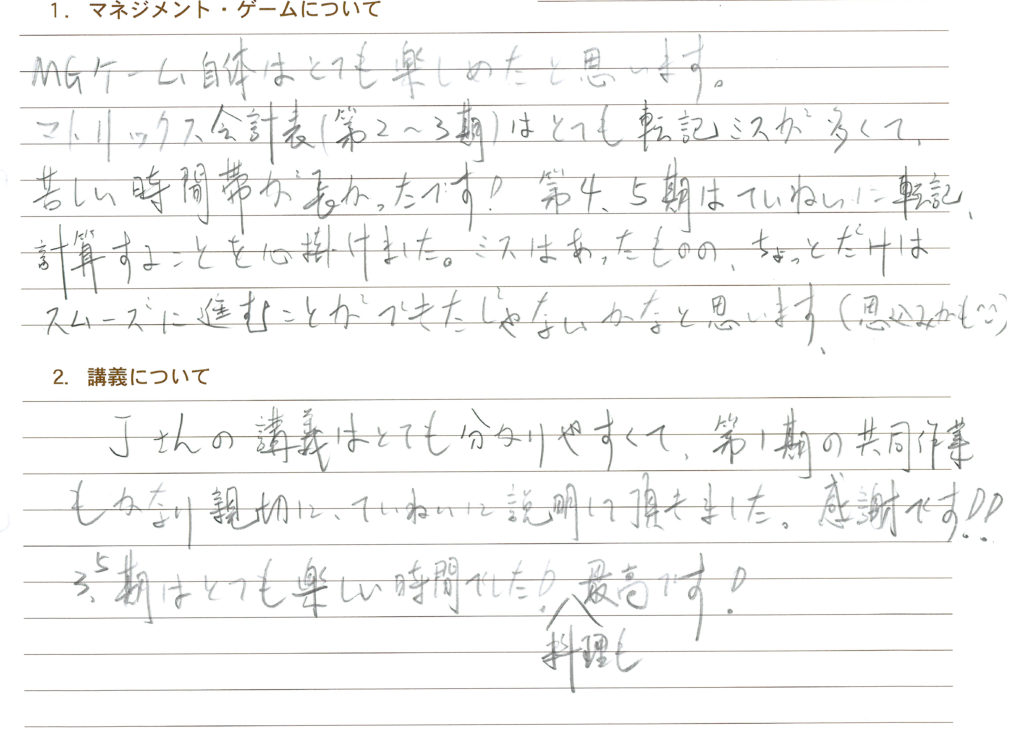 1. マネジメント・ゲームについて
MGゲーム自体はとても楽しめたと思います。
マトリックス会計表(第2～3期)はとても転記ミスが多くて、
苦しい時間帯が長かったです! 第4、5期はていねいに転記、
計算することを心掛けました。ミスはあったものの、ちょっとだけは
スムーズに進むことができたじゃないかなと思います、(思込みかも^^;)
2. 講義について
Jさんの講義はとても分かりやすくて、第1期の共同作業
もかなり親切に、ていねいに説明して頂きました。感謝です!!
3.5期はとても楽しい時間でした! 最高です!
料理も